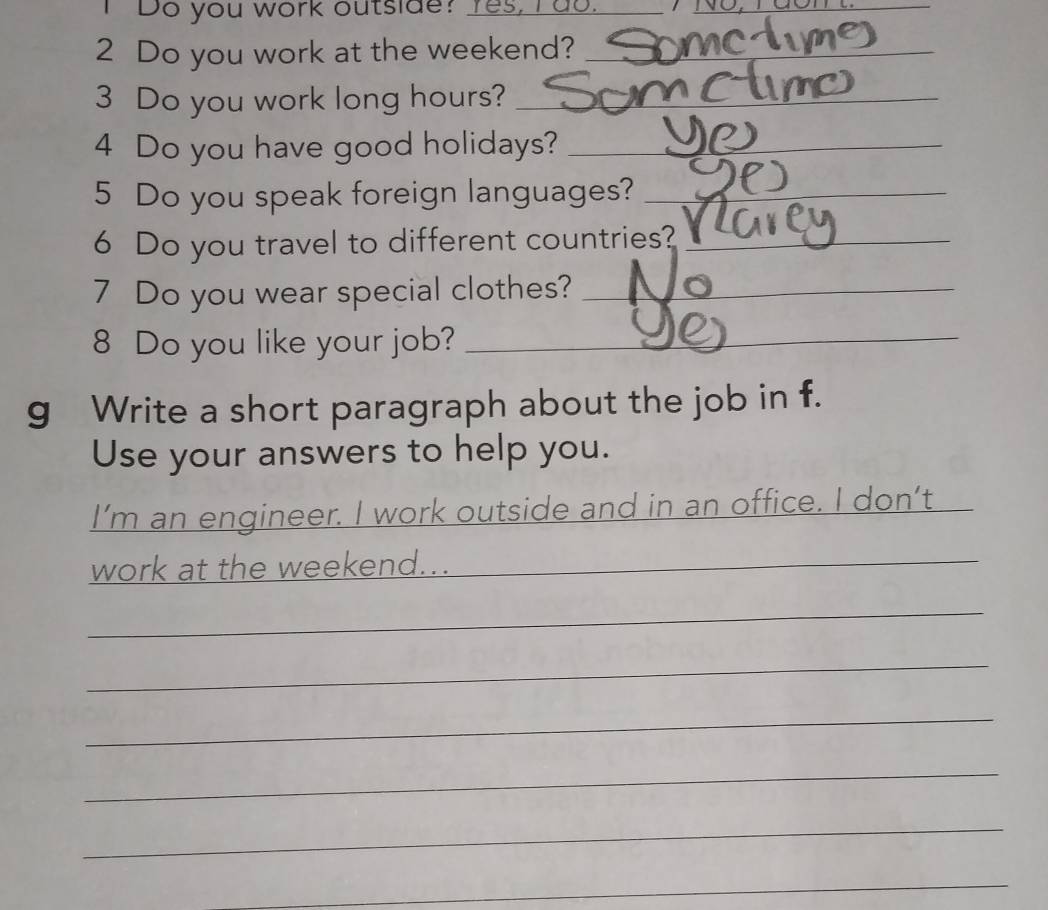 1 Do you work outside? Yes, I do. / No, I don't.
2 Do you work at the weekend? Sometimes
3 Do you work long hours? Sometimes
4 Do you have good holidays? Yes
5 Do you speak foreign languages? yes
6 Do you travel to different countries?
7 Do you wear special clothes? No
8 Do you like your job? yes
g Write a short paragraph about the job in f.
Use your answers to help you.
I'm an engineer. I work outside and in an office. I don't
work at the weekend...